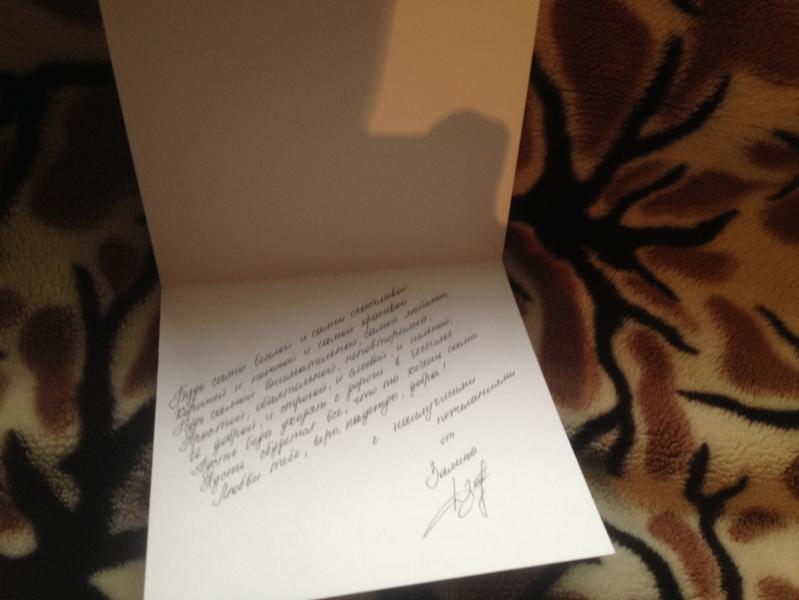 Будь самой веселой и самой счастливой,
Хорошей и нежной и самой красивой
Будь самой внимательной, самой любимой,
Простой, обаятельной, неповторимой,
И доброй, и строгой, и слабой и сильной,
Пусть беды уходят с дороги в бессилье
Пусть сбудется все, что ты хочешь сама
Любви тебе, веры, надежды, добра!
с наилучшими
пожеланиями
от